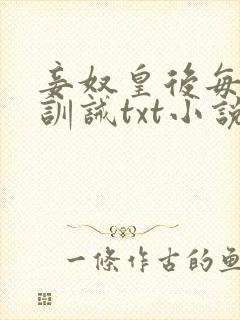 妾奴皇後每
訓誡txt小說
一條作古的魚